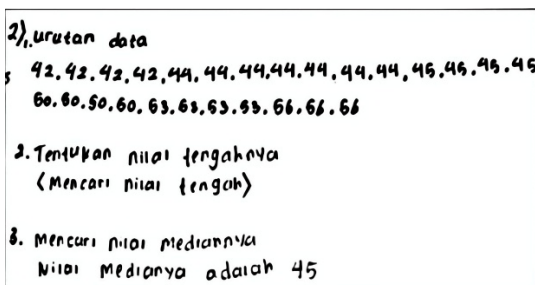 2). 1. urutan data
42. 42. 42. 42, 44. 44. 44, 44. 44, 44. 44, 45. 45. 45. 45
50. 50. 50. 50. 53. 53. 53. 53. 56. 56. 56
2. Tentukan nilai tengahnya
(Mencari nilai tengah)
3. Mencari nilai mediannya
Nilai Medianya adalah 45